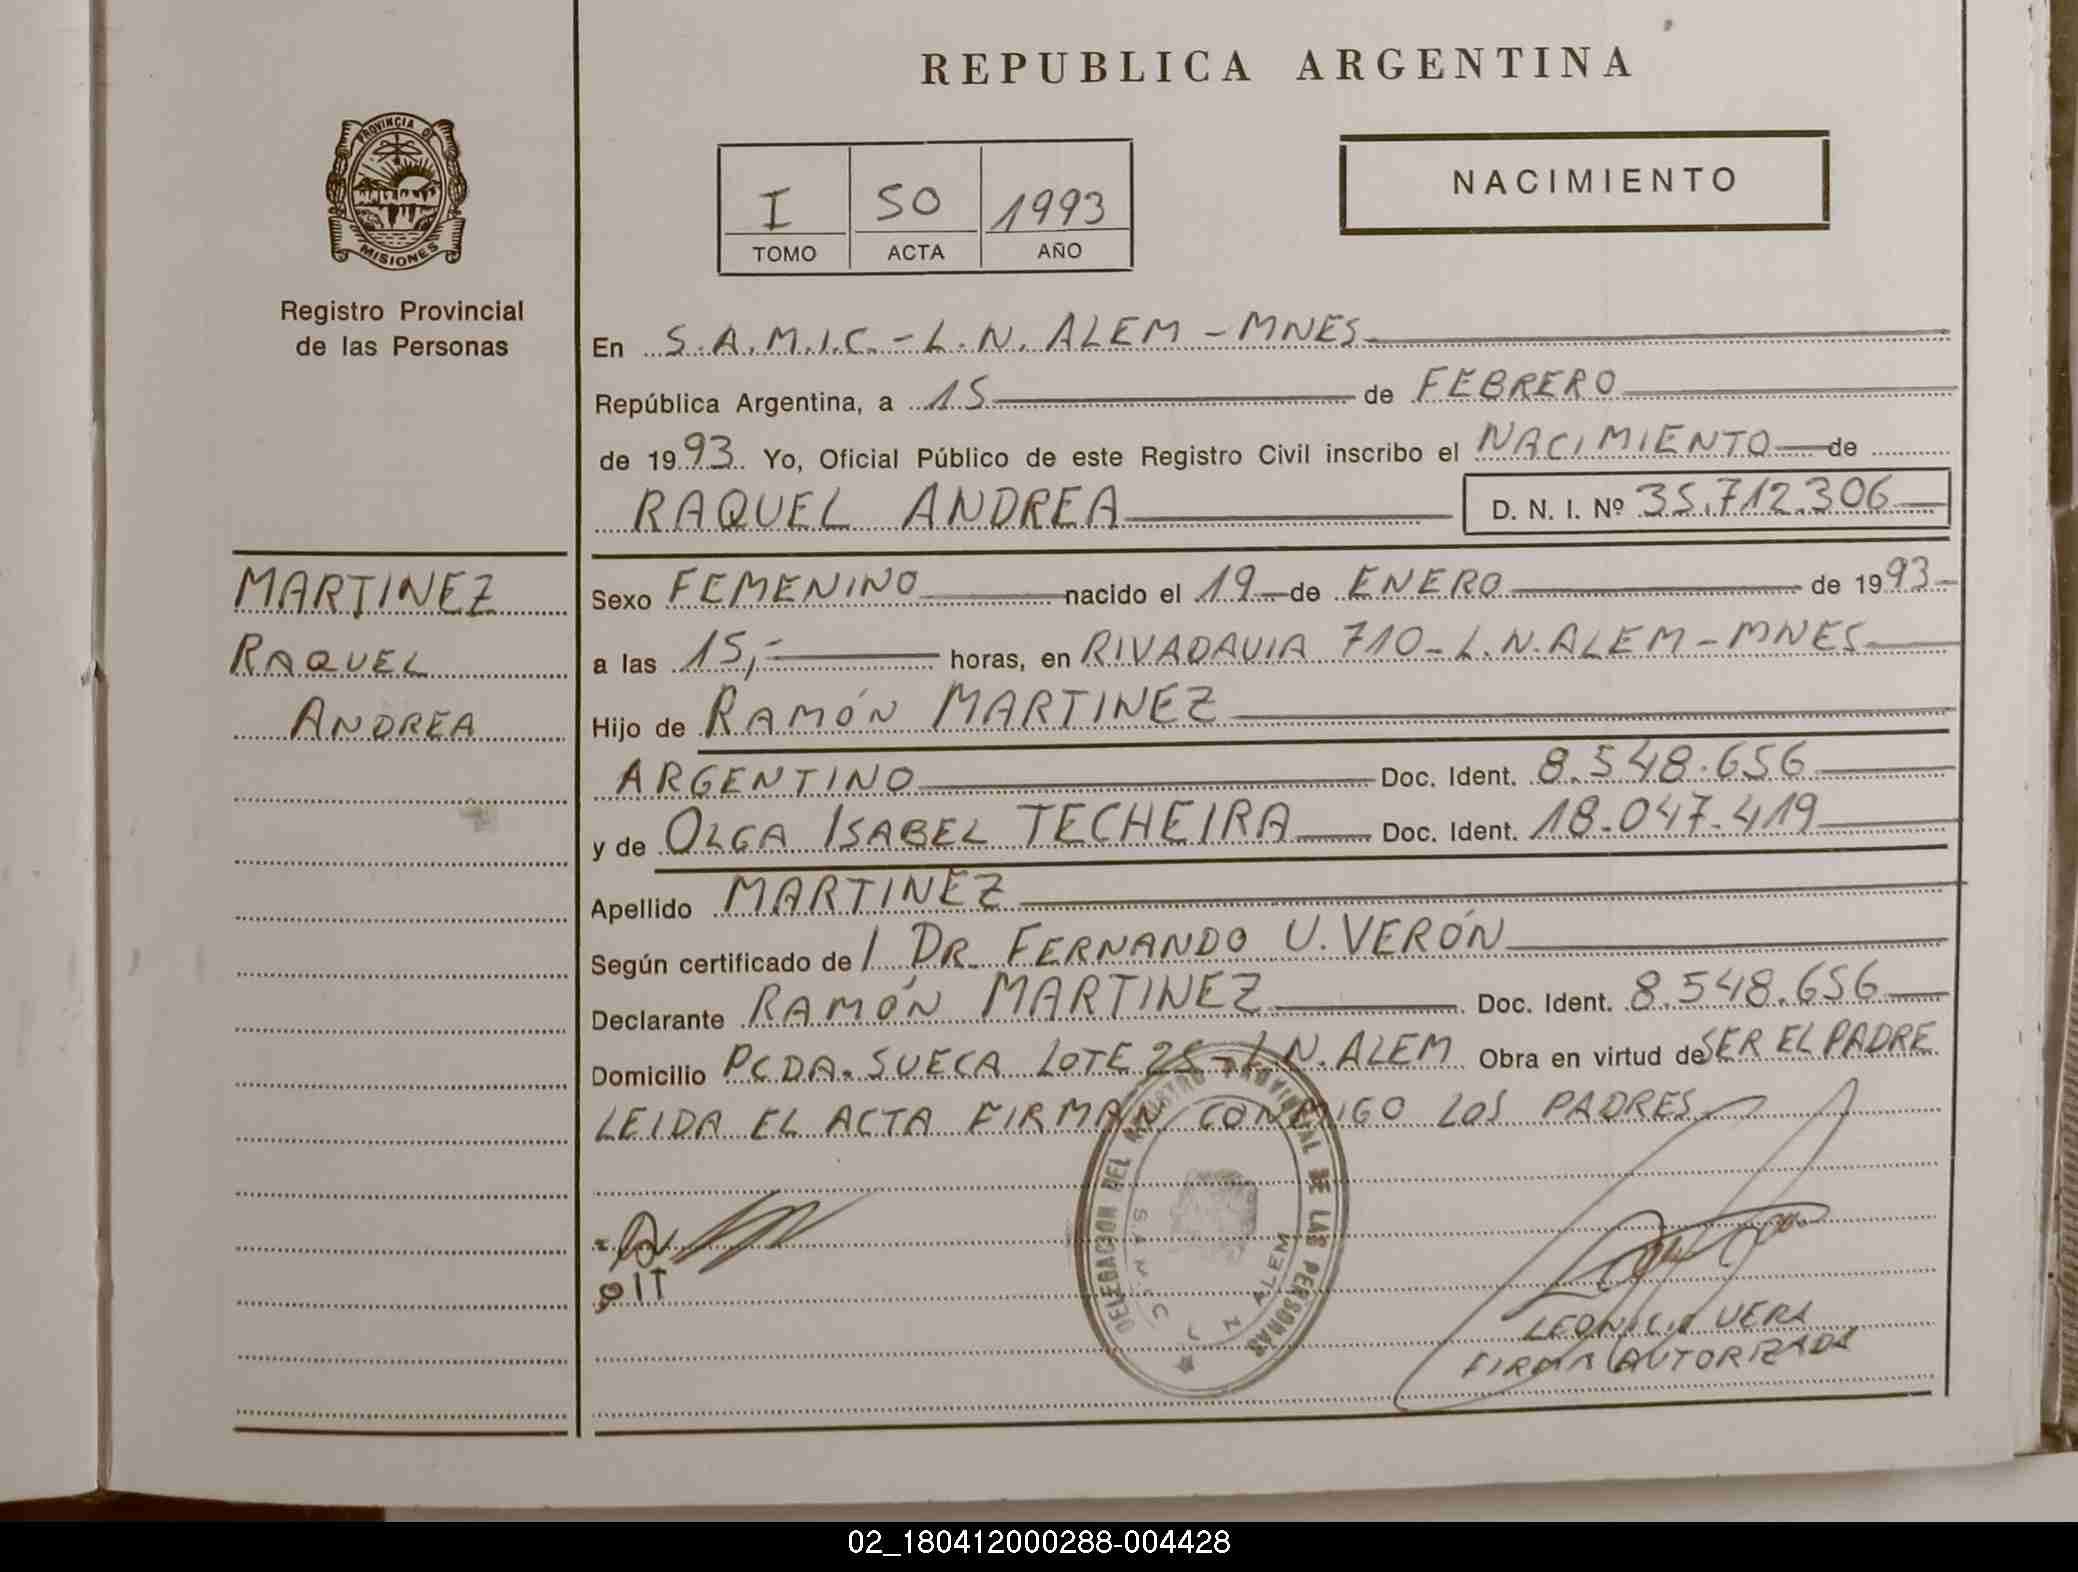 REPUBLICA ARGENTINA
PROVINCIA DE
MISIONES
Registro Provincial
de las Personas
I SO 1993
TOMO ACTA AÑO
NACIMIENTO
En S.A.M.I.C.-L.N. ALEM - MNES
República Argentina, a 15 de FEBRERO
de 1993. Yo, Oficial Público de este Registro Civil inscribo el NACIMIENTO de
RAQUEL ANDREA D. N. I. Nº 35.712.306
MARTINEZ
RAQUEL
ANDREA
Sexo FEMENINO nacido el 19 de ENERO de 1993
a las 15,- horas, en RIVADAVIA 710 - L.N. ALEM - MNES
Hijo de RAMÓN MARTINEZ
ARGENTINO Doc. Ident. 8.548.656
y de OLGA ISABEL TECHEIRA Doc. Ident. 18.047.419
Apellido MARTINEZ
Según certificado de / DR. FERNANDO U. VERÓN
Declarante RAMÓN MARTINEZ Doc. Ident. 8.548.656
Domicilio PCDA. SUECA LOTE 25 - L.N. ALEM Obra en virtud de SER EL PADRE
LEIDA EL ACTA FIRMAN CONMIGO LOS PADRES
DELEGACION DEL REGISTRO PROVINCIAL DE LAS PERSONAS
S.A.M.I.C. L N ALEM
VERA
FIRMA AUTORIZADA
02_180412000288-004428